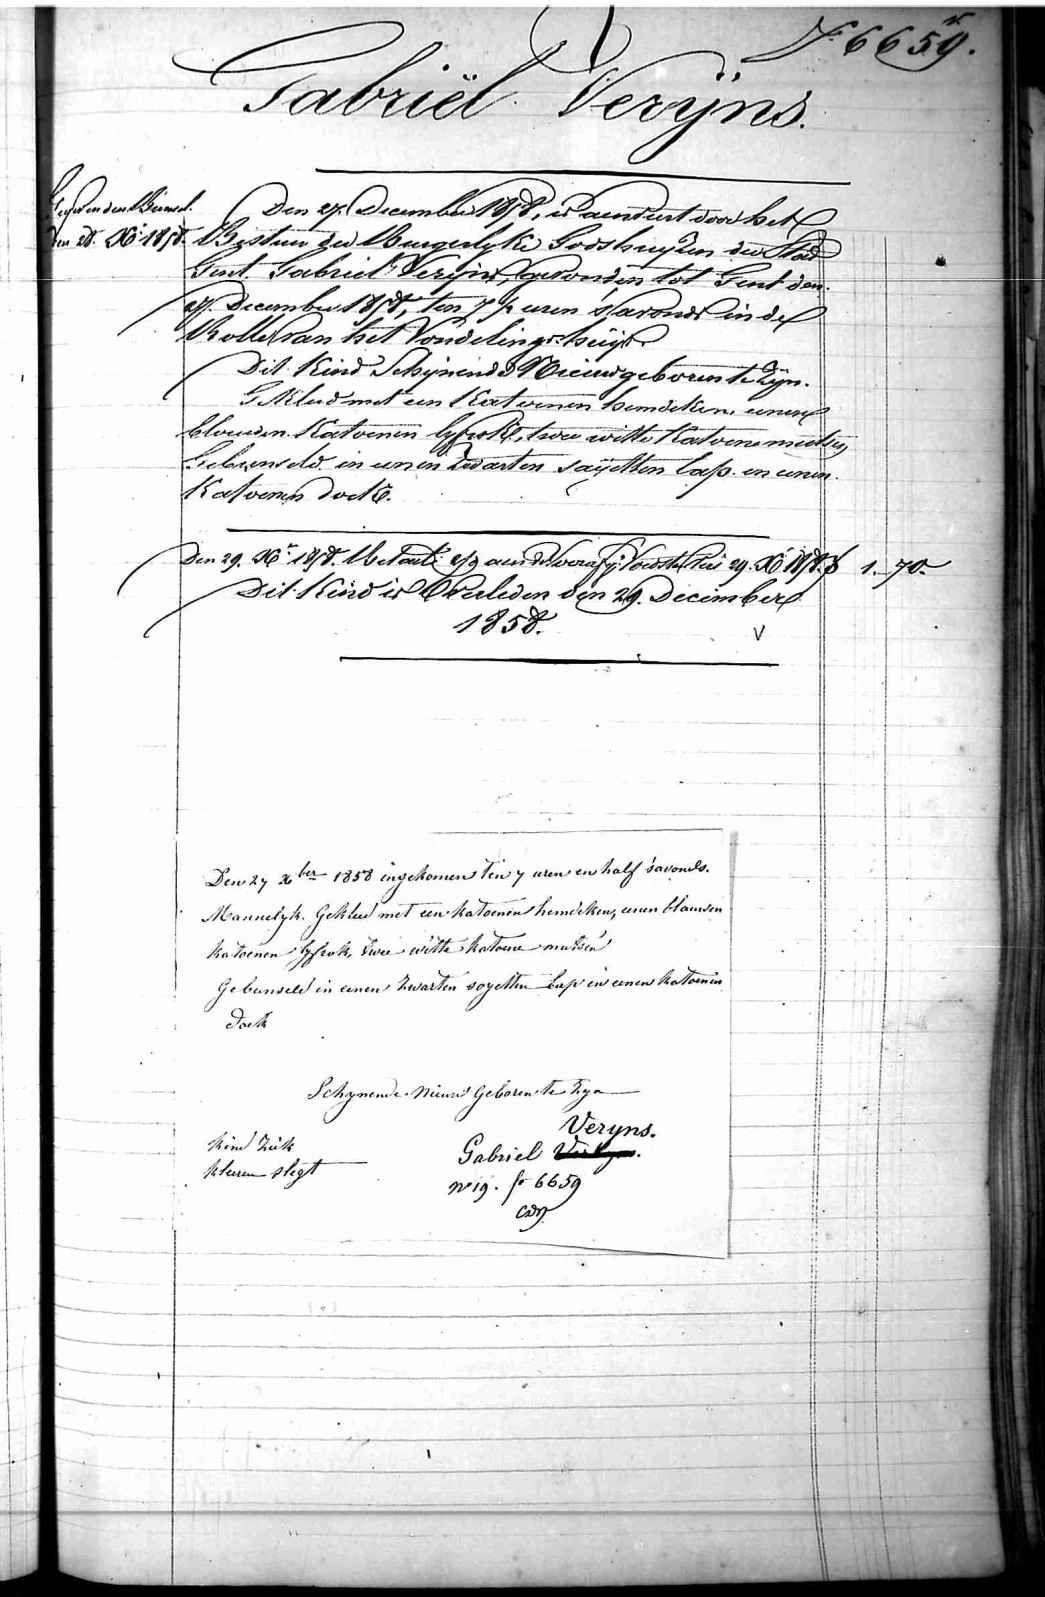 Fo 6659.
Gabriël Verÿns.
den 28. Xbr 1858.
Den 27. December 1858, is aenveert door het
Bestuer der Burgerlyke Godshuyzen der Stad
Gent, Gabriel Verÿns, gevonden tot Gent den
27. December 1858, ten 7 1/2 uren s'avonds in de
Rolle van het Vondelings-huys.
Dit Kind Schynende Nieuwgeboren te Zÿn.
Gekleed met een Katoenen hemdeken, eenen
blauwen Katoenen lyfrok, twee witte Katoene mutsen
Gebunseld in eenen Zwarten sayetten lap en eenen
Katoenen doek.
Den 29. Xbr 1858. 29 Xbr 1858. f 1.70.
Dit Kind is Overleden den 29. December
1858.
V
Den 27 Xber 1858 ingekomen ten 7 uren en half s'avonds.
Mannelyk. Gekleed met een katoenen hemdeken, eenen blauwen
katoenen lyfrok, twee witte katoene mutsen
Gebunseld in eenen zwarten sayetten lap en eenen katoenen
doek
Schynende Nieuw Geboren te zyn
Veryns.
kind ziek
Gabriel
kleeren slegt
No 19. fo 6659